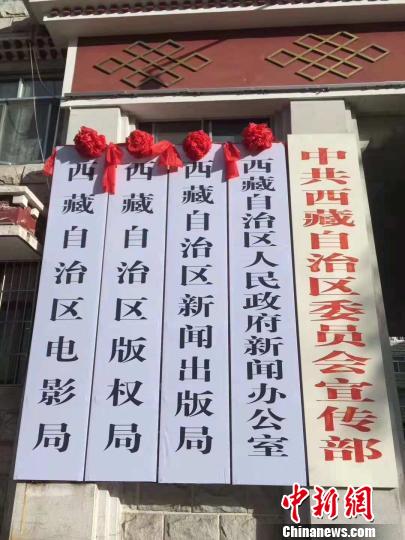 西藏自治区电影局
西藏自治区版权局
西藏自治区新闻出版局
西藏自治区人民政府新闻办公室
中共西藏自治区委员会宣传部
中新网
Chinanews.com